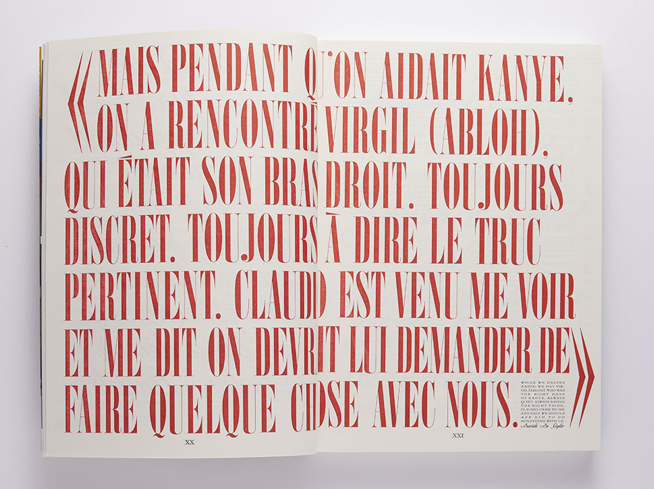 « MAIS PENDANT QU'ON AIDAIT KANYE,
ON A RENCONTRÉ VIRGIL (ABLOH),
QUI ÉTAIT SON BRAS DROIT. TOUJOURS
DISCRET. TOUJOURS À DIRE LE TRUC
PERTINENT. CLAUDIO EST VENU ME VOIR
ET ME DIT ON DEVRAIT LUI DEMANDER DE
FAIRE QUELQUE CHOSE AVEC NOUS. »
WHILE WE HELPED
KANYE, WE MET VIR-
GIL (ABLOH) WHO WAS
THE RIGHT HAND
OF KANYE. ALWAYS
QUIET. ALWAYS SAYING
THE RIGHT THING.
CLAUDIO CAME TO ME
AND SAID, WE SHOULD
ASK HIM TO DO
SOMETHING WITH US.
XX
XXI